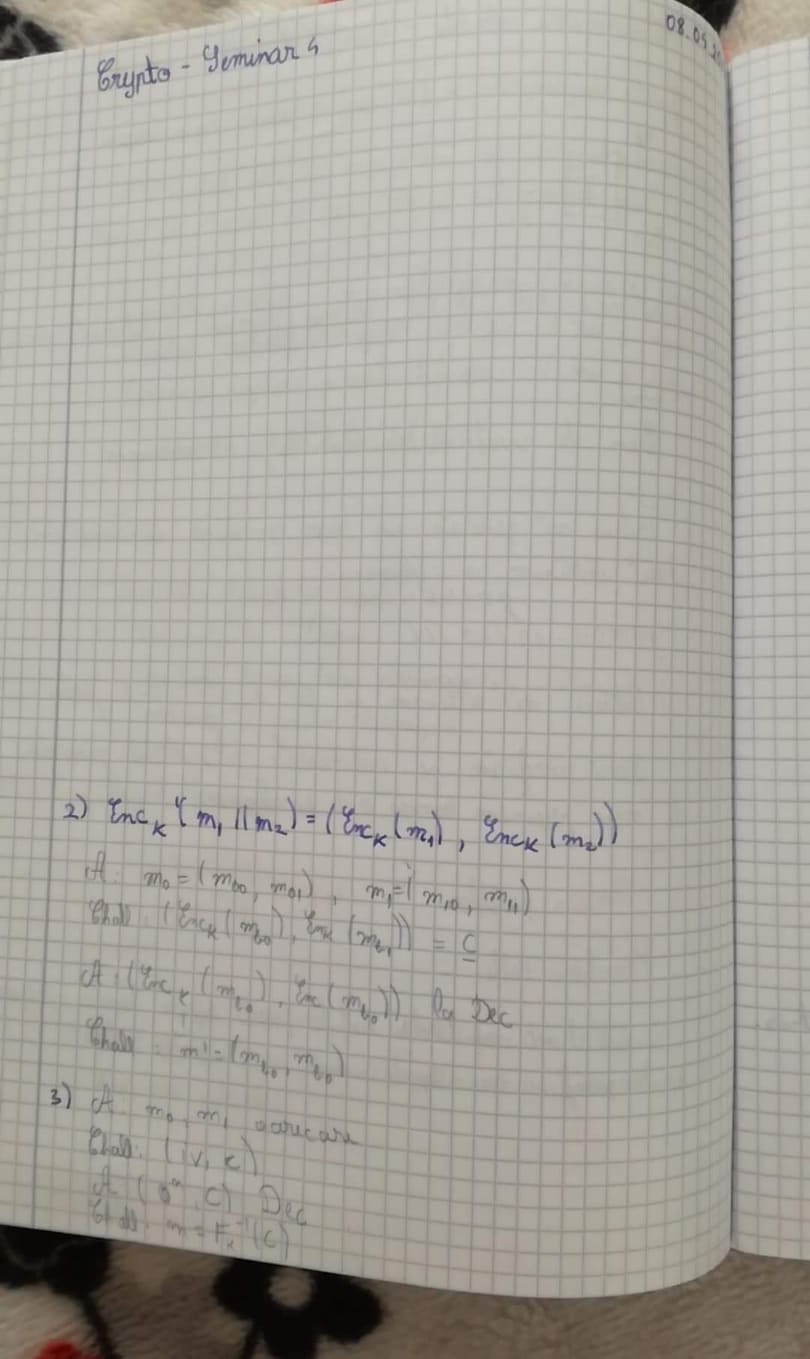 08.05.
Crypto - Seminar 4
2) Enc_K'(m_1 || m_2) = (Enc_K(m_1), Enc_K(m_2))
A: m_0 = (m_00, m_01), m_1 = (m_10, m_11)
Chall: (Enc_K(m_b0), Enc_K(m_b1)) = C
A: (Enc_K(m_b0), Enc(m_b0)) la Dec
Chall: m' = (m_b0, m_b0)
3) A: m_0, m_1 oarecare
Chall: (iv, c)
A (0^n, C) Dec
Chall: m = F_K^-1(C)